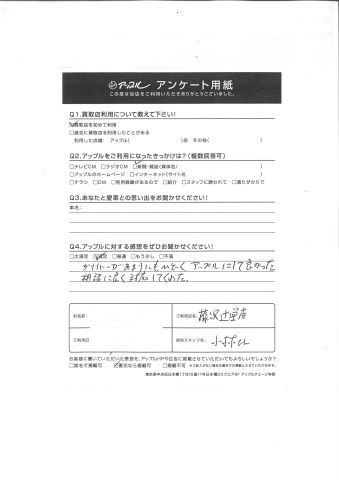 アップル アンケート用紙
この度は当店をご利用いただきありがとうございました。
Q1.買取店利用について教えて下さい!
☑買取店を初めて利用
□過去に買取店を利用したことがある
利用した店舗： アップル( )店 その他( )
Q2.アップルをご利用になったきっかけは?(複数回答可)
□テレビCM □ラジオCM □新聞・雑誌(媒体名/ )
□アップルのホームページ □インターネット(サイト名 )
□チラシ □DM □利用経験があるので □紹介 □スタッフに誘われて □通りがかりで
Q3.あなたと愛車との思い出をお聞かせください!
車名：
Q4.アップルに対する感想をぜひお聞かせください!
□大満足 ☑満足 □普通 □もう少し □不満
アップルにして良かった
相談に 対応してくれた。
お名前：
ご利用店名： 藤沢辻堂店
ご利用日
担当スタッフ名：
お客様に書いていただいた感想を、アップルHPや広告に掲載させていただいてもよろしいでしょうか?
□実名で掲載可 ☑匿名なら掲載可 □掲載不可